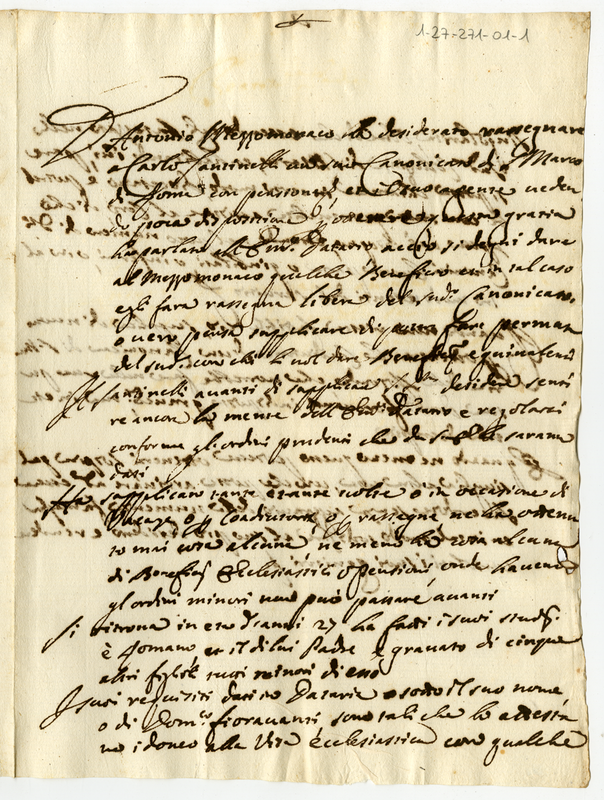 1-27-271-01-1
D. Antonio Mezzomonaco ha desiderato rassegnare
a Carlo Santinelli un suo Canonicato di S. Marco
di Roma con pensione, et
poca disposizione, ottenere questa grazia
ha parlato all' Em.o Datario acciò si degni dare
al Mezzomonaco qualche Beneficio et in tal caso
egli farà rassegna libera del sud.o Canonicato,
o vero possa supplicare di poter fare permuta
del sud. con chi li vol dare Beneficij equivalenti
Il Santinelli avanti di supplicare desidera senti
re ancora la mente dell' Em.o Datario e regolarsi
conforme gl'ordini prudenti che da saranno
dati
Ha supplicato tante e tante volte o in occasione di
Vacanze o p Coadiutorie, o p rassegne, ne ha ottenu
to mai cosa alcuna, ne meno ha cosa alcuna
di Beneficij Ecclesiastici o pensioni, onde havendo
gl'ordini minori non può passare avanti
Si ritrova in età d'anni 27 ha fatti i suoi studij
è Romano, et il di lui Padre è gravato di cinque
altri figlioli tutti minori di esso
I suoi requisiti dati in Dataria o sotto il suo nome
o di Dom.co Fioravanti sono tali che lo attesta
no idoneo alla Vita ecclesiastica con qualche